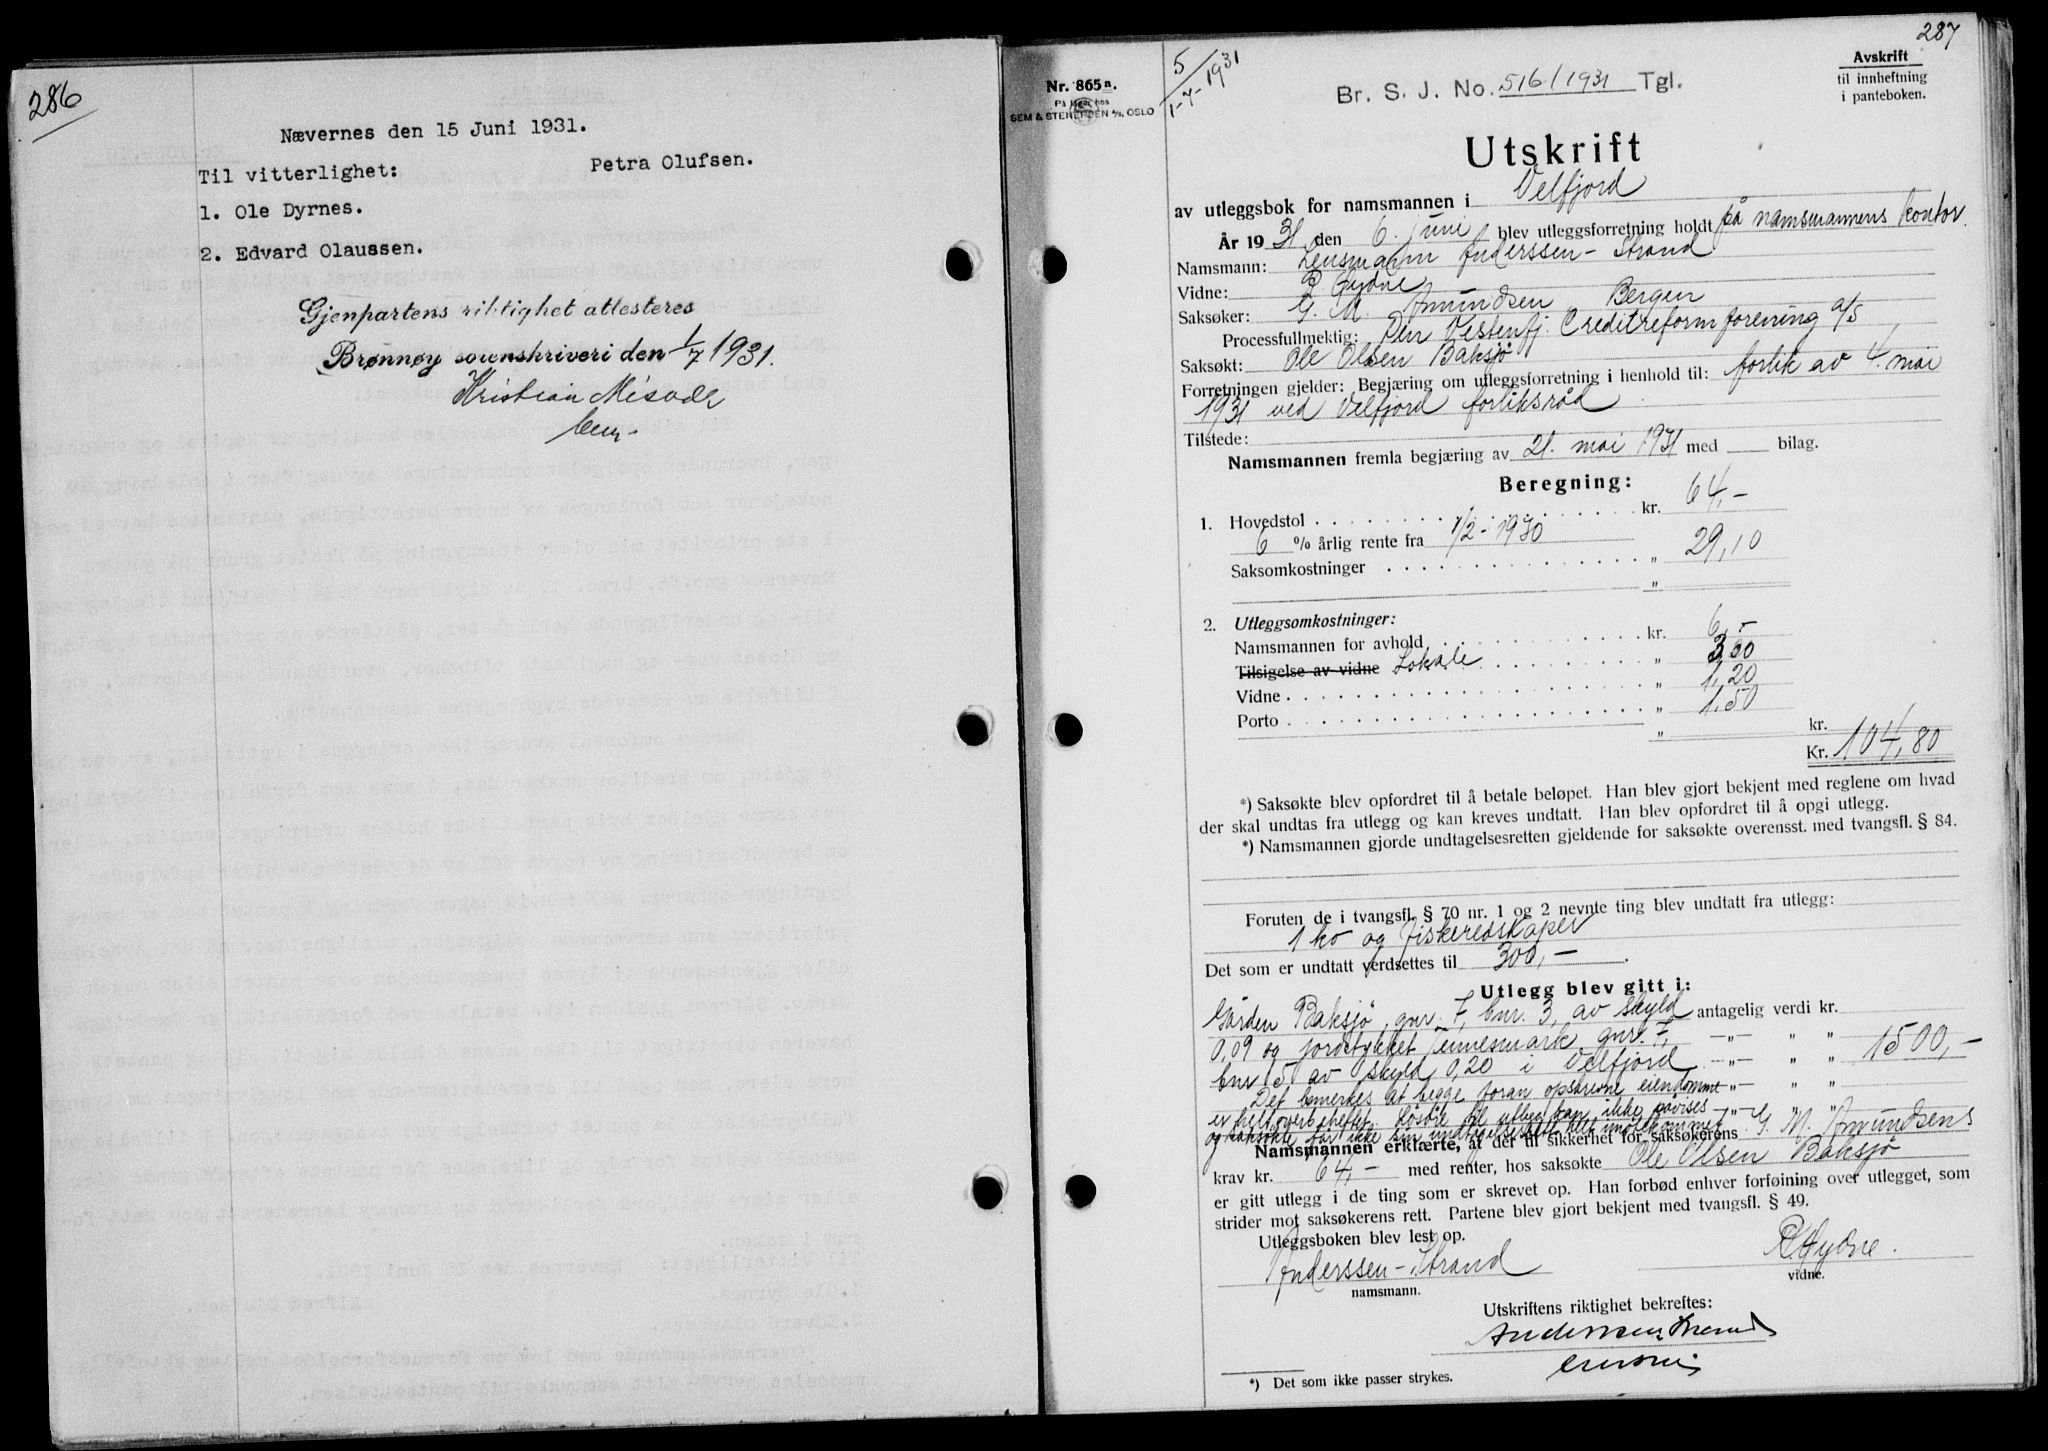 286
Nævernes den 15 Juni 1931.
Til vitterlighet:
Petra Olufsen.
1. Ole Dyrnes.
2. Edvard Olaussen.
Gjenpartens riktighet attesteres
Brønnøy sorenskriveri den 1/7 1931.
Kristian
287
Nr. 865 a.
På lager hos
SEM & STENERSEN A/S, OSLO
5/
1-7-1931
Br. S. J. No. 516/1931 Tgl.
Avskrift
til innheftning
i panteboken.
Utskrift
av utleggsbok for namsmannen i Velfjord
År 1931 den 6. juni blev utleggsforretning holdt på namsmannens kontor.
Namsmann: Lensmann Anderssen-Strand
Vidne: P. Gydne
Saksøker: G. M. Amundsen, Bergen
Processfullmektig: Den Vestenfj. Creditreformforening A/S
Saksøkt: Ole Olsen Baksjø
Forretningen gjelder: Begjæring om utleggsforretning i henhold til: forlik av 4. mai
1931 ved Velfjord forliksråd
Tilstede:
Namsmannen fremla begjæring av 21. mai 1931 med bilag.
Beregning:
1. Hovedstol kr. 64,-
6 % årlig rente fra 1/2-1930
Saksomkostninger „ 29,10
„
2. Utleggsomkostninger:
Namsmannen for avhold kr. 6,-
Tilsigelse av vidne Lokale „ 3,00
Vidne „ 1,20
Porto „ 1,50
„ kr.
Kr. 104,80
*) Saksøkte blev opfordret til å betale beløpet. Han blev gjort bekjent med reglene om hvad
der skal undtas fra utlegg og kan kreves undtatt. Han blev opfordret til å opgi utlegg.
*) Namsmannen gjorde undtagelsesretten gjeldende for saksøkte overensst. med tvangsfl. § 84.
Foruten de i tvangsfl. § 70 nr. 1 og 2 nevnte ting blev undtatt fra utlegg:
1 ko og fiskeredskaper
Det som er undtatt verdsettes til 300,-
Utlegg blev gitt i:
Gården Baksjø, gnr. 7, bnr. 3, av skyld antagelig verdi kr.
0,09 og jordstykket Tennesmark gnr. 7, —„— „ „ 1500,-
bnr 5 av skyld 0,20 i Velfjord —„— „ „
Det bemerkes at begge foran opskrevne eiendomme —„— „ „
er helt overbeheftet. Løsøre til utlegg kan ikke påvises —„— „ „
og saksøkte får ikke sin undtagelsesrett helt imøtekommet
Namsmannen erklærte, at det til sikkerhet for saksøkerens G. M. Amundsens
krav kr. 64,- med renter, hos saksøkte Ole Olsen Baksjø
er gitt utlegg i de ting som er skrevet op. Han forbød enhver forføining over utlegget, som
strider mot saksøkerens rett. Partene blev gjort bekjent med tvangsfl. § 49.
Utleggsboken blev lest op.
Anderssen-Strand
namsmann.
P. Gydne.
vidne.
Utskriftens riktighet bekreftes:
Anderssen Strand
*) Det som ikke passer strykes.